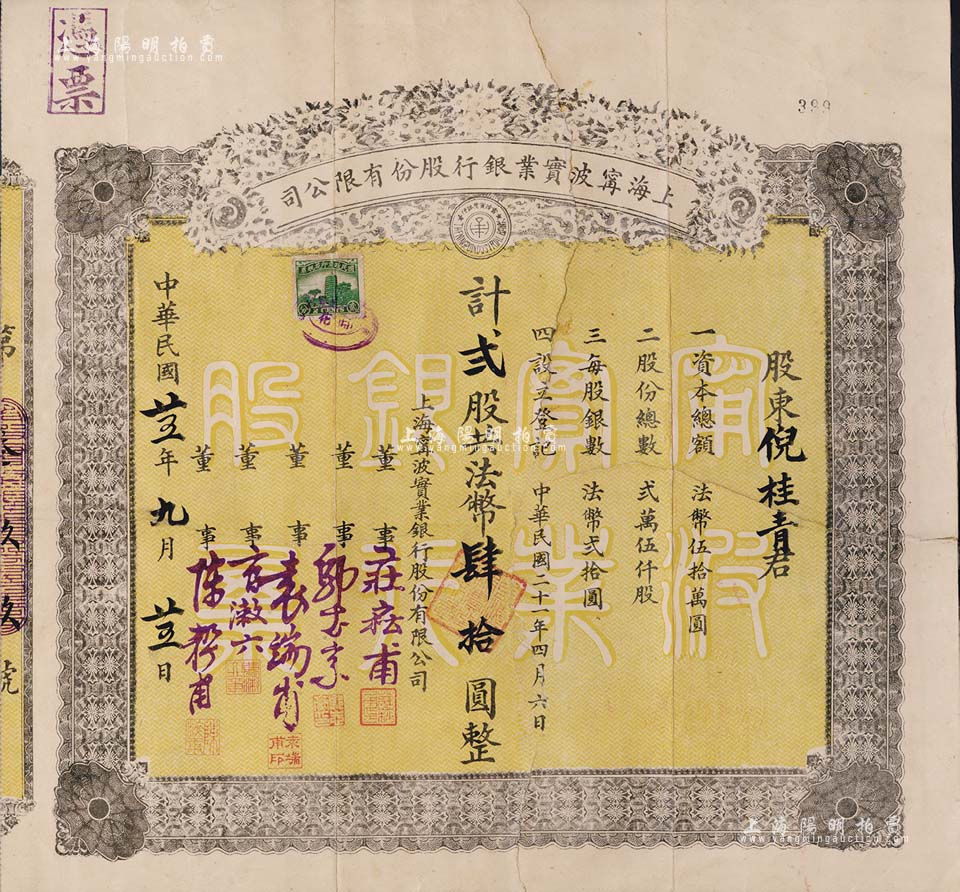 憑票
上海陽明拍賣
www.yangmingauction.com
399
上海甯波實業銀行股份有限公司
股東倪桂青君
一資本總額 法幣伍拾萬圓
二股份總數 弍萬伍仟股
三每股銀數 法幣弍拾圓
四設立登記 中華民國二十一年四月六日
計弍股抉法幣肆拾圓整
上海甯波實業銀行股份有限公司
董事 莊崧甫
董事
董事 袁端甫
董事
董事 陳粹甫
中華民國廿五年九月廿五日
甯波
實業
銀
股
第
玖玖號
上海陽明拍賣
www.yangmingauction.com
上海陽明拍賣
www.yangmingauction.com